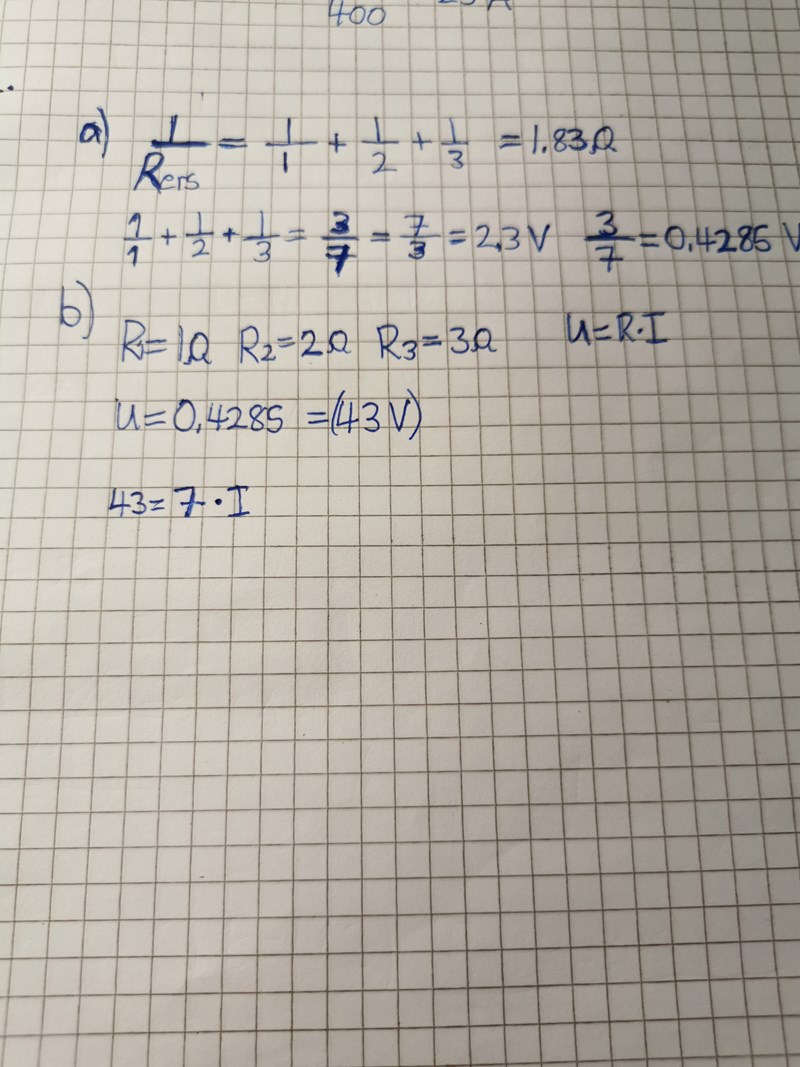 400
a) 1/Rers = 1/1 + 1/2 + 1/3 = 1.83Ω
1/1 + 1/2 + 1/3 = 3/7 = 7/3 = 2,3 V 3/7 = 0,4285 V
b)
R1=1Ω R2=2Ω R3=3Ω U=R·I
U=0,4285 =(43V)
43=7·I